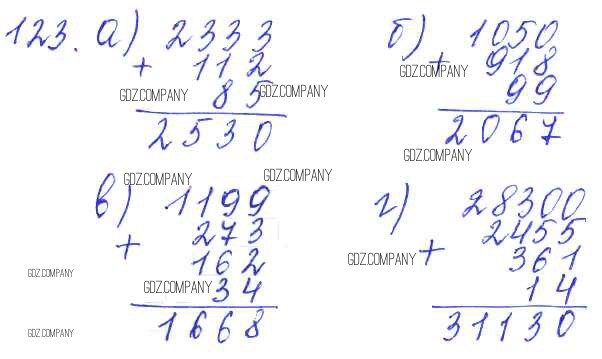 123. а) 2333
+ 112
85
2530
б) 1050
+ 918
99
2067
в) 1199
+ 273
162
34
1668
г) 28300
2455
+ 361
14
31130
GDZ.COMPANY
GDZ.COMPANY
GDZ.COMPANY
GDZ.COMPANY
GDZ.COMPANY
GDZ.COMPANY
GDZ.COMPANY
GDZ.COMPANY
GDZ.COMPANY
GDZ.COMPANY